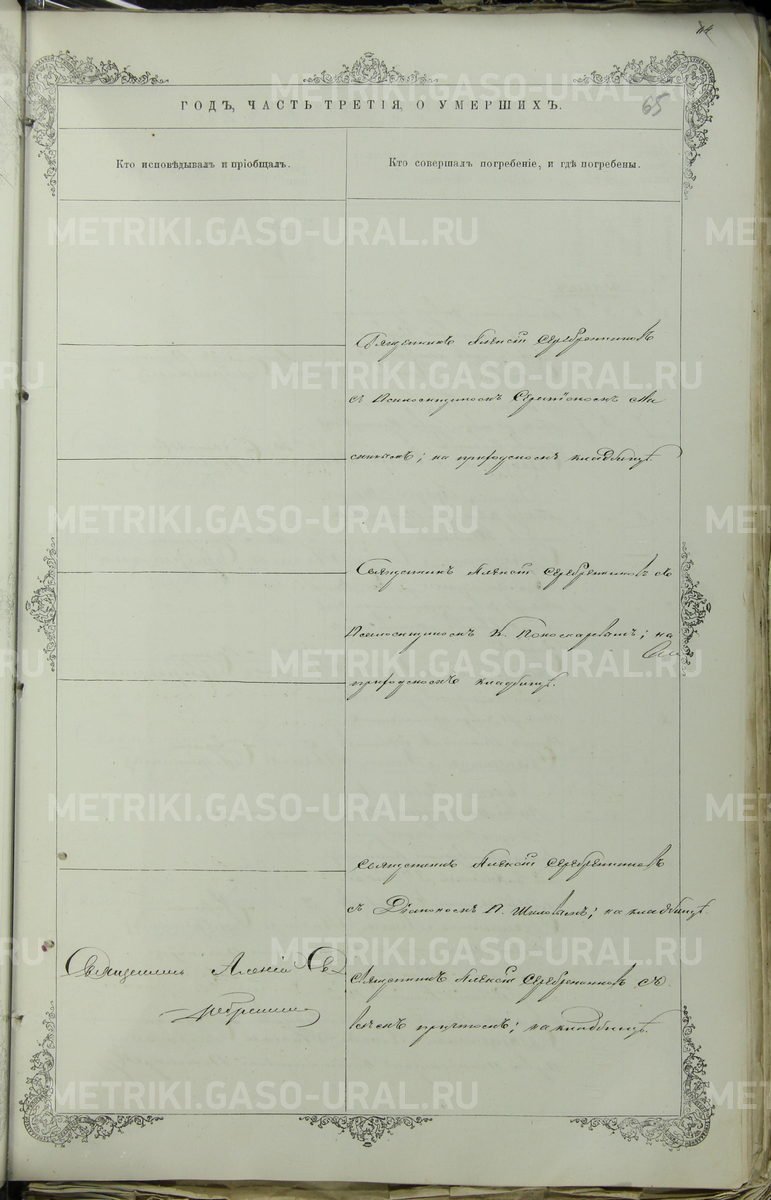 65
ГОДЪ, ЧАСТЬ ТРЕТІЯ, О УМЕРШИХЪ.
Кто исповѣдывалъ и пріобщалъ.
Кто совершалъ погребеніе, и гдѣ погребены.
Священникъ Алексій Серебренниковъ
съ Псаломщикомъ
на приходскомъ кладбищѣ.
Священникъ Алексій Серебренниковъ съ
Псаломщикомъ К. Пономаревымъ; на
приходскомъ кладбищѣ.
Священникъ Алексій Серебренниковъ
съ Діакономъ П. Шиловымъ; на кладбищѣ.
Священникъ Алексій Се-
ребренник
Священникъ Алексій Серебренниковъ съ
всѣмъ причтомъ; на кладбищѣ.
METRIKI.GASO-URAL.RU